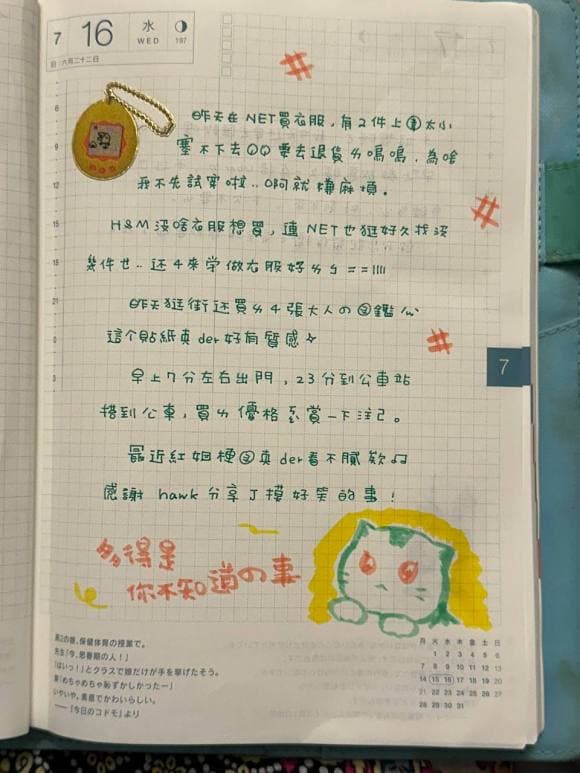 7 16 水 WED 197
旧 六月二十二日
昨天在NET買衣服，有2件上太小
塞不下去QQ 要去退貨ㄌ嗚嗚．為啥
我不先試穿啦..啊就嫌麻煩。
H&M沒啥衣服想買，連NET也逛好久找沒
幾件也..还4來学做衣服好ㄌㄅ==||||
昨天逛街还買ㄌ4張大人の圖鑑
這个貼紙真der好有質感
早上7分左右出門，23分到公車站
搭到公車，買ㄌ優格賞一下注己。
最近紅姐梗圖真der看不膩欸♫
感謝 hawk 分享J模好笑的事！
多得是
你不知道の事
7
高2の娘、保健体育の授業で。
先生「今、思春期の人！」
「はいっ！」とクラスで娘だけが手を挙げたそう。
娘「めちゃめちゃ恥ずかしかったー」
いやいや、素直でかわいらしい。
——『今日のコドモ』より
月 火 水 木 金 土 日
1 2 3 4 5 6
7 8 9 10 11 12 13
14 15 16 17 18 19 20
21 22 23 24 25 26 27
28 29 30 31